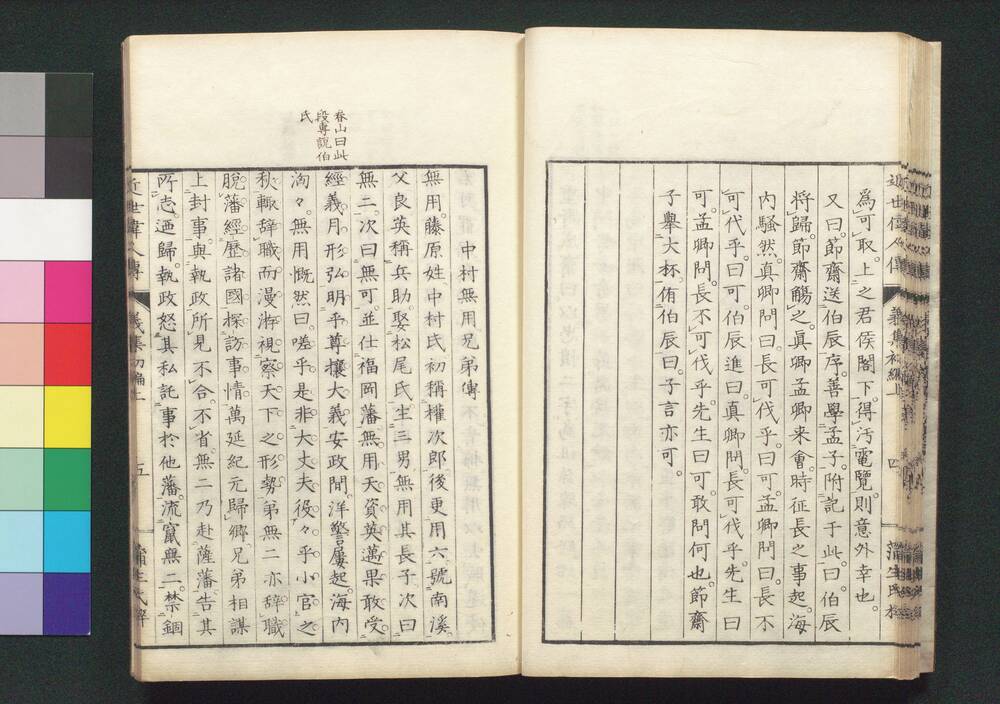 近世偉人傳　義集初編上　四　蒲生氏梓
爲可取。上之君侯閣下。得汚電覽。則意外幸也。
又曰。節齋送伯辰序。善學孟子。附記于此。曰。伯辰
將歸。節齋觴之。眞卿孟卿来會。時征長之事起。海
内騷然。眞卿問曰。長可伐乎。曰可。孟卿問曰。長不
可伐乎。曰可。伯辰進曰。眞卿問。長可伐乎。先生曰
可。孟卿問。長不可伐乎。先生曰可。敢問何也。節齋
子舉大杯。侑伯辰曰。子言亦可。
中村無用兄弟傳
無用。藤原姓。中村氏。初稱權次郎。後更用六。號南溪。
父良英。稱兵助。娶松尾氏。生三男。無用其長子。次曰
無二。次曰無可。並仕福岡藩。無用天資英邁果敢。受
經義月形弘明。平尊攘大義。安政間。洋警屢起。海内
洶々。無用慨然曰。嗟乎。是非大丈夫役々乎小官之
秋。輙辭職而漫游。視察天下之形勢。弟無二亦辭職
脱藩。經歴諸國。探訪事情。萬延紀元歸郷。兄弟相謀
上封事。與執政所見不合。不省。無二乃赴薩藩。告其
所志。迺歸。執政怒其私託事於他藩。流竄無二。禁錮
近世偉人傳　義集初編上　五　蒲生氏梓
春山曰此
段專説伯
氏